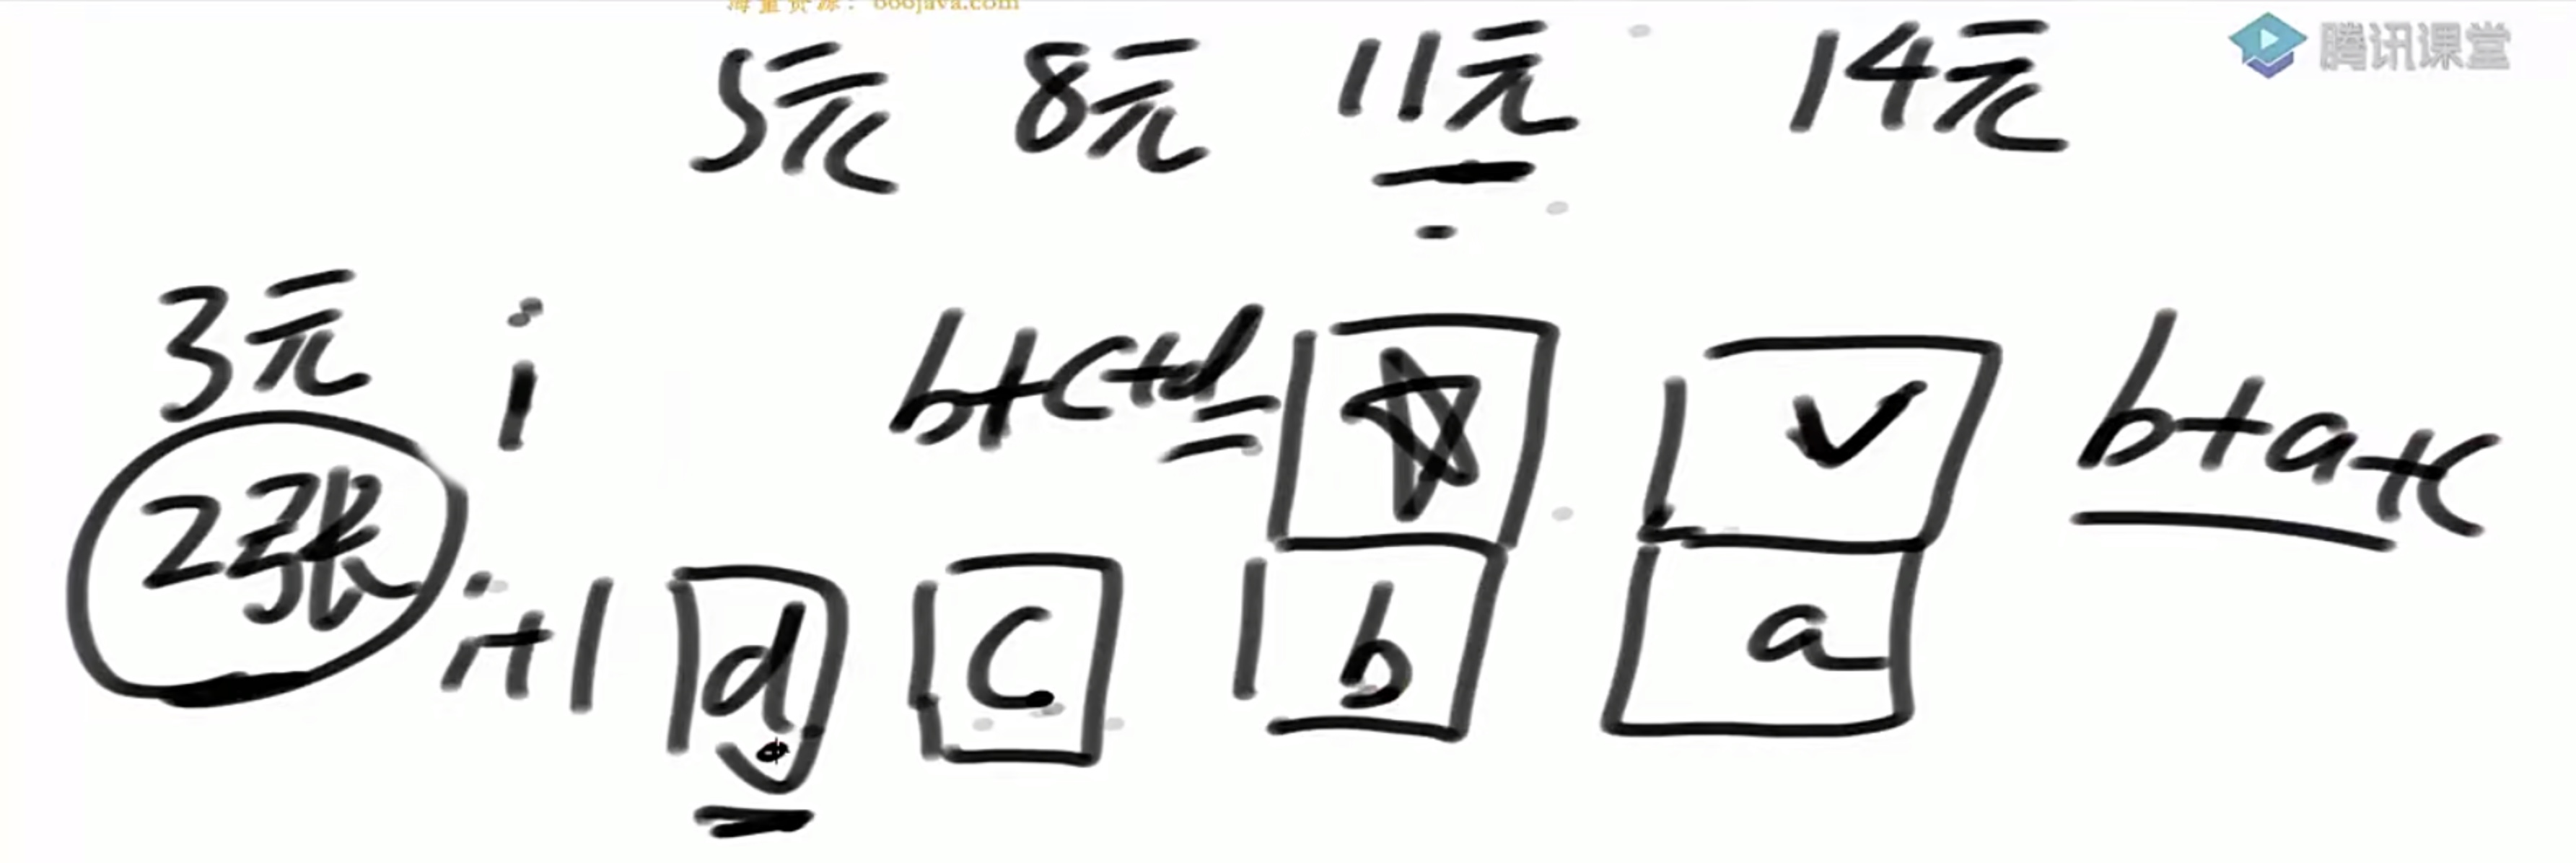 海量资源：666java.com
腾讯课堂
5元 8元 11元 14元
3元 i b+c+d= ☆ √ b+a+c
2张
i+1 d c b a